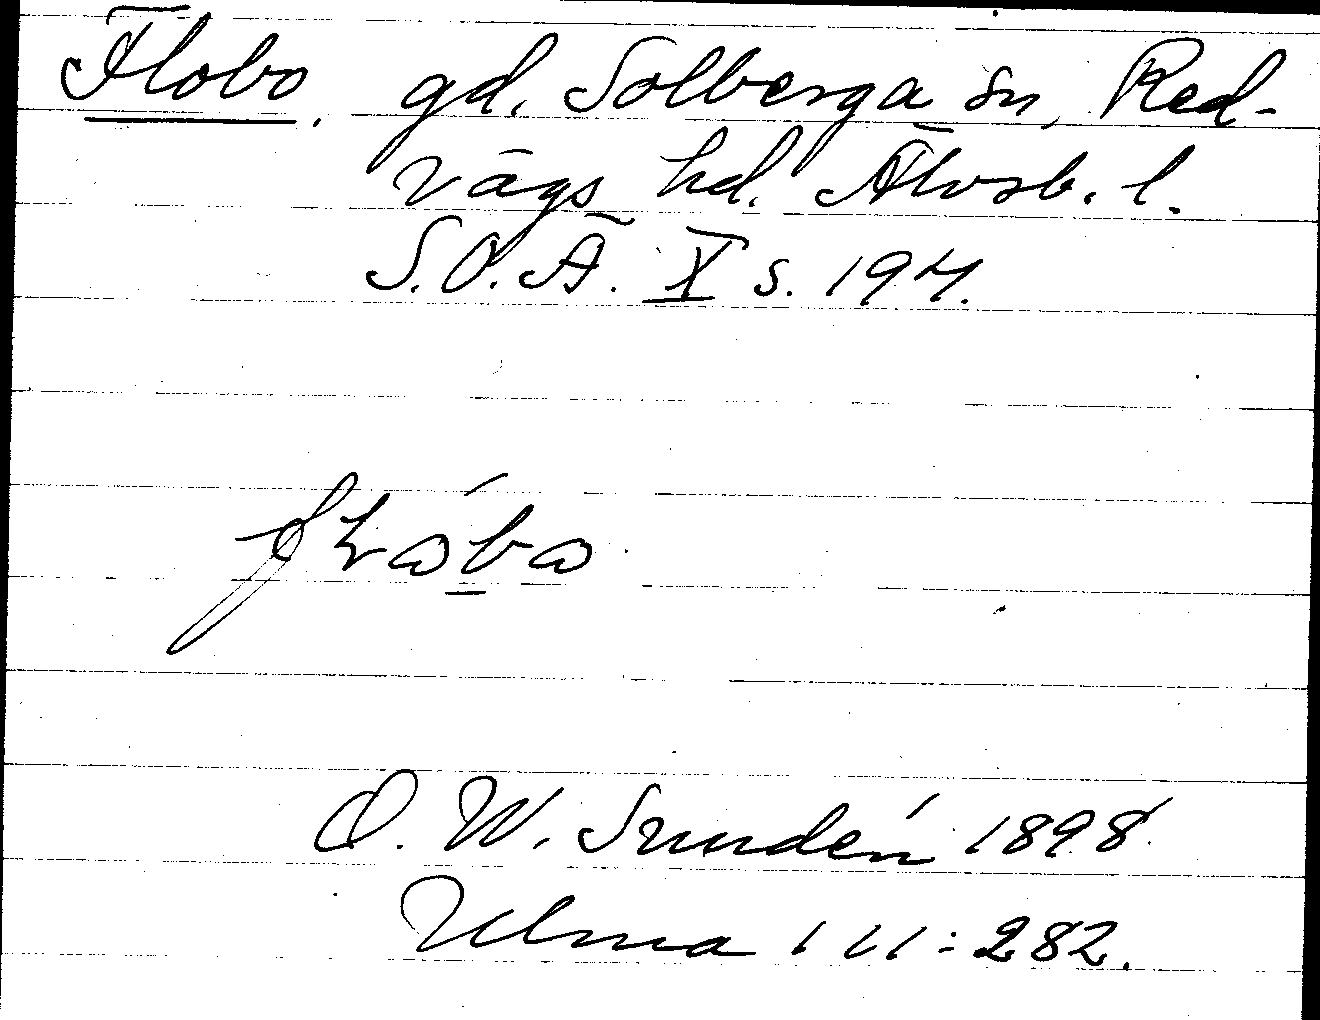 Flobo, gd. Solberga sn, Red-
vägs hd. Älvsb. l.
S.O.Ä. X s. 194.
O. W. Sundén 1898.
Ulma 111:282.